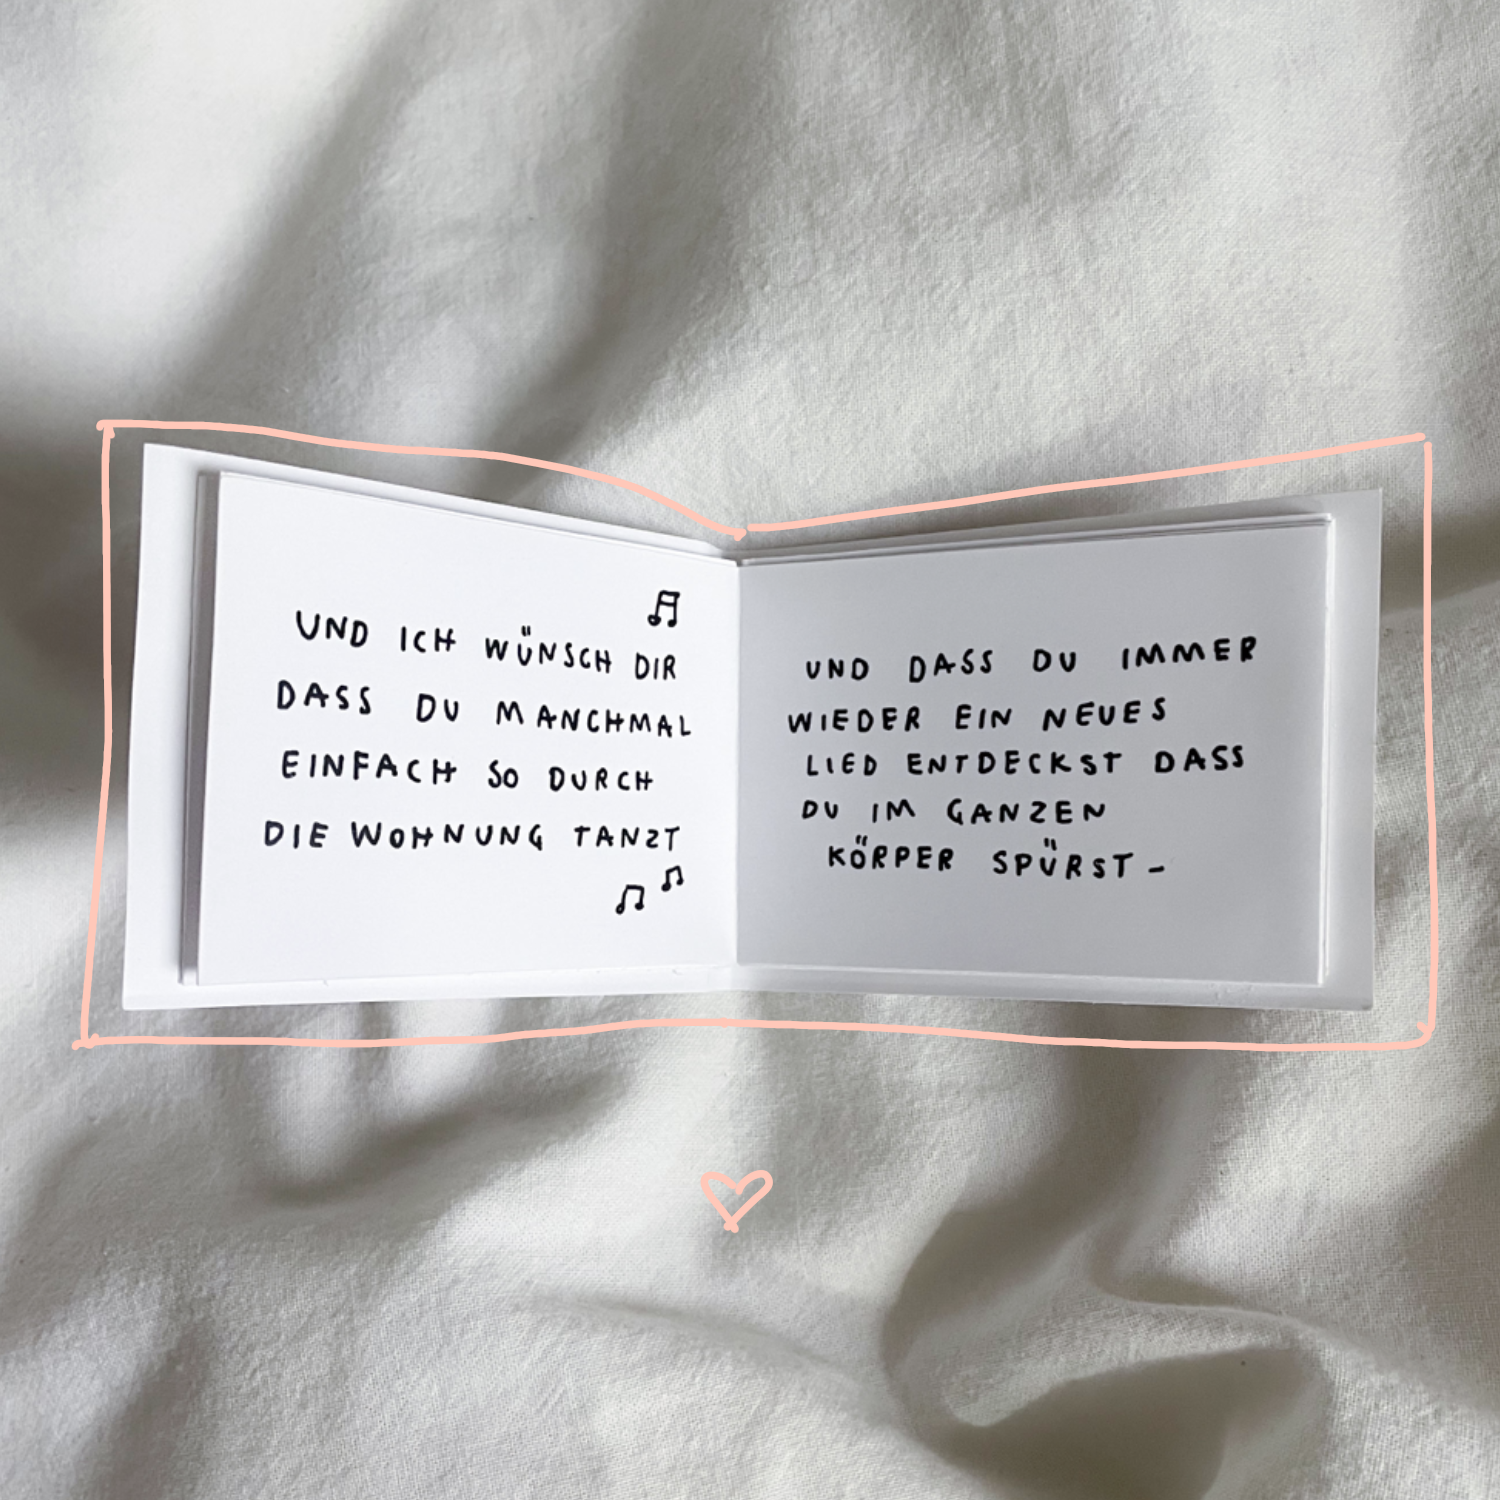 UND ICH WÜNSCH DIR
DASS DU MANCHMAL
EINFACH SO DURCH
DIE WOHNUNG TANZT
UND DASS DU IMMER
WIEDER EIN NEUES
LIED ENTDECKST DASS
DU IM GANZEN
KÖRPER SPÜRST –